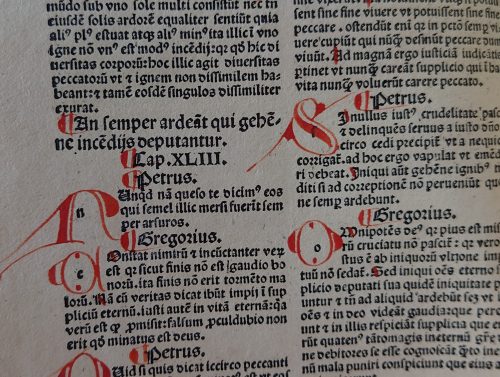 mūdo sub vno sole multi consistūt nec tn̄
eiusdē solis ardorē equaliter sentiūt quia
alī pl̄ estuat atq̢ alī min̄ ita illic ī vno
igne nō vn̄ est mod̄ incēdij: q̢ hic di
uersitas corporū: hoc illic agit diuersitas
peccatorū vt ⁊ ignem non dissimilem ha
beant: ⁊ tamē eosdē singulos dissimiliter
exurat.
¶An semper ardeāt qui gehē-
ne incēdijs deputantur.
¶Cap. XLIII.
¶Petrus.
Nunqd nā queso te dicim̄ eos
qui semel illic mersi fuerīt sem
per arsuros.
¶Gregorius.
Constat nimirū ⁊ incūctanter veꝝ
est q̢ sicut finis nō est gaudio bo
noꝝ. ita finis nō erit tormēto ma
lorū. Nā cū veritas dicat ibūt impij ī sup
pliciū eternū. iusti autē in vitā eternā: q̢a
verū est q̢ p̄misit: falsum p̄culdubio non
erit q̢ minatus est deus.
¶Petrus.
Quid si quis dicat iccirco peccanti
ne sine fine viuere vt potuissent sine fine
peccare. ostendūt enī q̢ in pctō semꝑ vi
uere cupiūt qui nūq̄ desinūt peccare dum
viuūt. Ad magnā ergo iusticiā iudicātis
ꝑtinet vt nunq̄ careāt supplicio qui ī hac
vita nunq̄ voluerūt carere peccato.
¶Petrus.
Sinullus iust̄ crudelitate pasc
⁊ delinquēs seruus a iusto dño
circo cedi precipit vt a nequic
corrigat. ad hoc ergo vapulat vt emēd
ri debeat. Iniqui aūt gehēne ignib̄ t
diti si ad correptionē nō perueniūt qu
ne semꝑ ardebunt.
¶Gregorius.
Omnipotēs dē q̢ pius est mis
rū cruciatu nō pascit: q̢ vero
stus ē ab iniquoꝝ vltione imp
tuū nō sedat. Sed iniqui oēs eterno
plicio deputati sua quidē iniquitate p
untur ⁊ tn̄ ad aliquid ardebūt scꝫ vt
oēs ⁊ in deo videāt gaudia: que perc
unt ⁊ in illis respiciāt supplicia que e
rūt quaten̄ tātomagis ineternū grē
ne debitores se esse cognoscāt q̢to in
nū mala puniri conspiciunt que eius